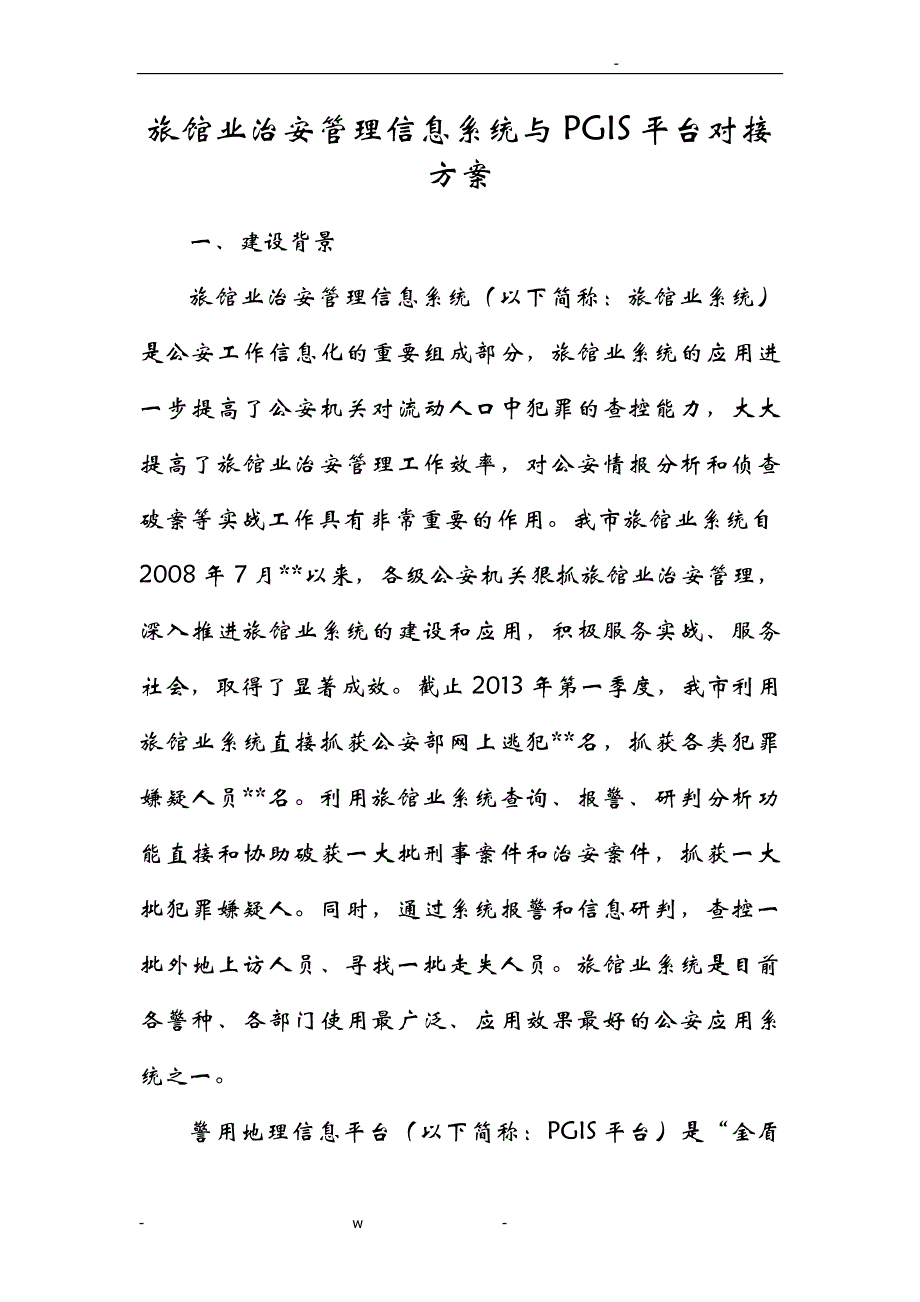 -
旅馆业治安管理信息系统与 PGIS 平台对接
方案
一、建设背景
旅馆业治安管理信息系统（以下简称：旅馆业系统）
是公安工作信息化的重要组成部分，旅馆业系统的应用进
一步提高了公安机关对流动人口中犯罪的查控能力，大大
提高了旅馆业治安管理工作效率，对公安情报分析和侦查
破案等实战工作具有非常重要的作用。我市旅馆业系统自
2008 年 7 月**以来，各级公安机关狠抓旅馆业治安管理，
深入推进旅馆业系统的建设和应用，积极服务实战、服务
社会，取得了显著成效。截止 2013 年第一季度，我市利用
旅馆业系统直接抓获公安部网上逃犯**名，抓获各类犯罪
嫌疑人员**名。利用旅馆业系统查询、报警、研判分析功
能直接和协助破获一大批刑事案件和治安案件，抓获一大
批犯罪嫌疑人。同时，通过系统报警和信息研判，查控一
批外地上访人员、寻找一批走失人员。旅馆业系统是目前
各警种、各部门使用最广泛、应用效果最好的公安应用系
统之一。
警用地理信息平台（以下简称：PGIS 平台）是“金盾
- w -